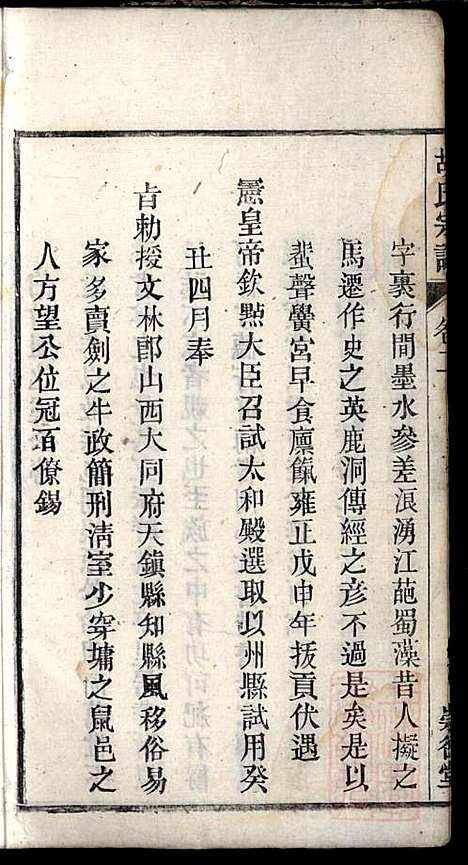 胡氏宗譜 卷二
字裏行間墨水參差浪湧江葩蜀藻昔人擬之
馬遷作史之英鹿洞傳經之彥不過是矣是以
蜚聲黌宮早食廩餼雍正戊申年拔貢伏遇
憲皇帝欽點大臣召試太和殿選取以州縣試用癸
丑四月奉
旨勅授文林郎山西大同府天鎮縣知縣風移俗易
家多賣劍之牛政簡刑清室少穿墉之鼠邑之
人方望公位冠百僚錫